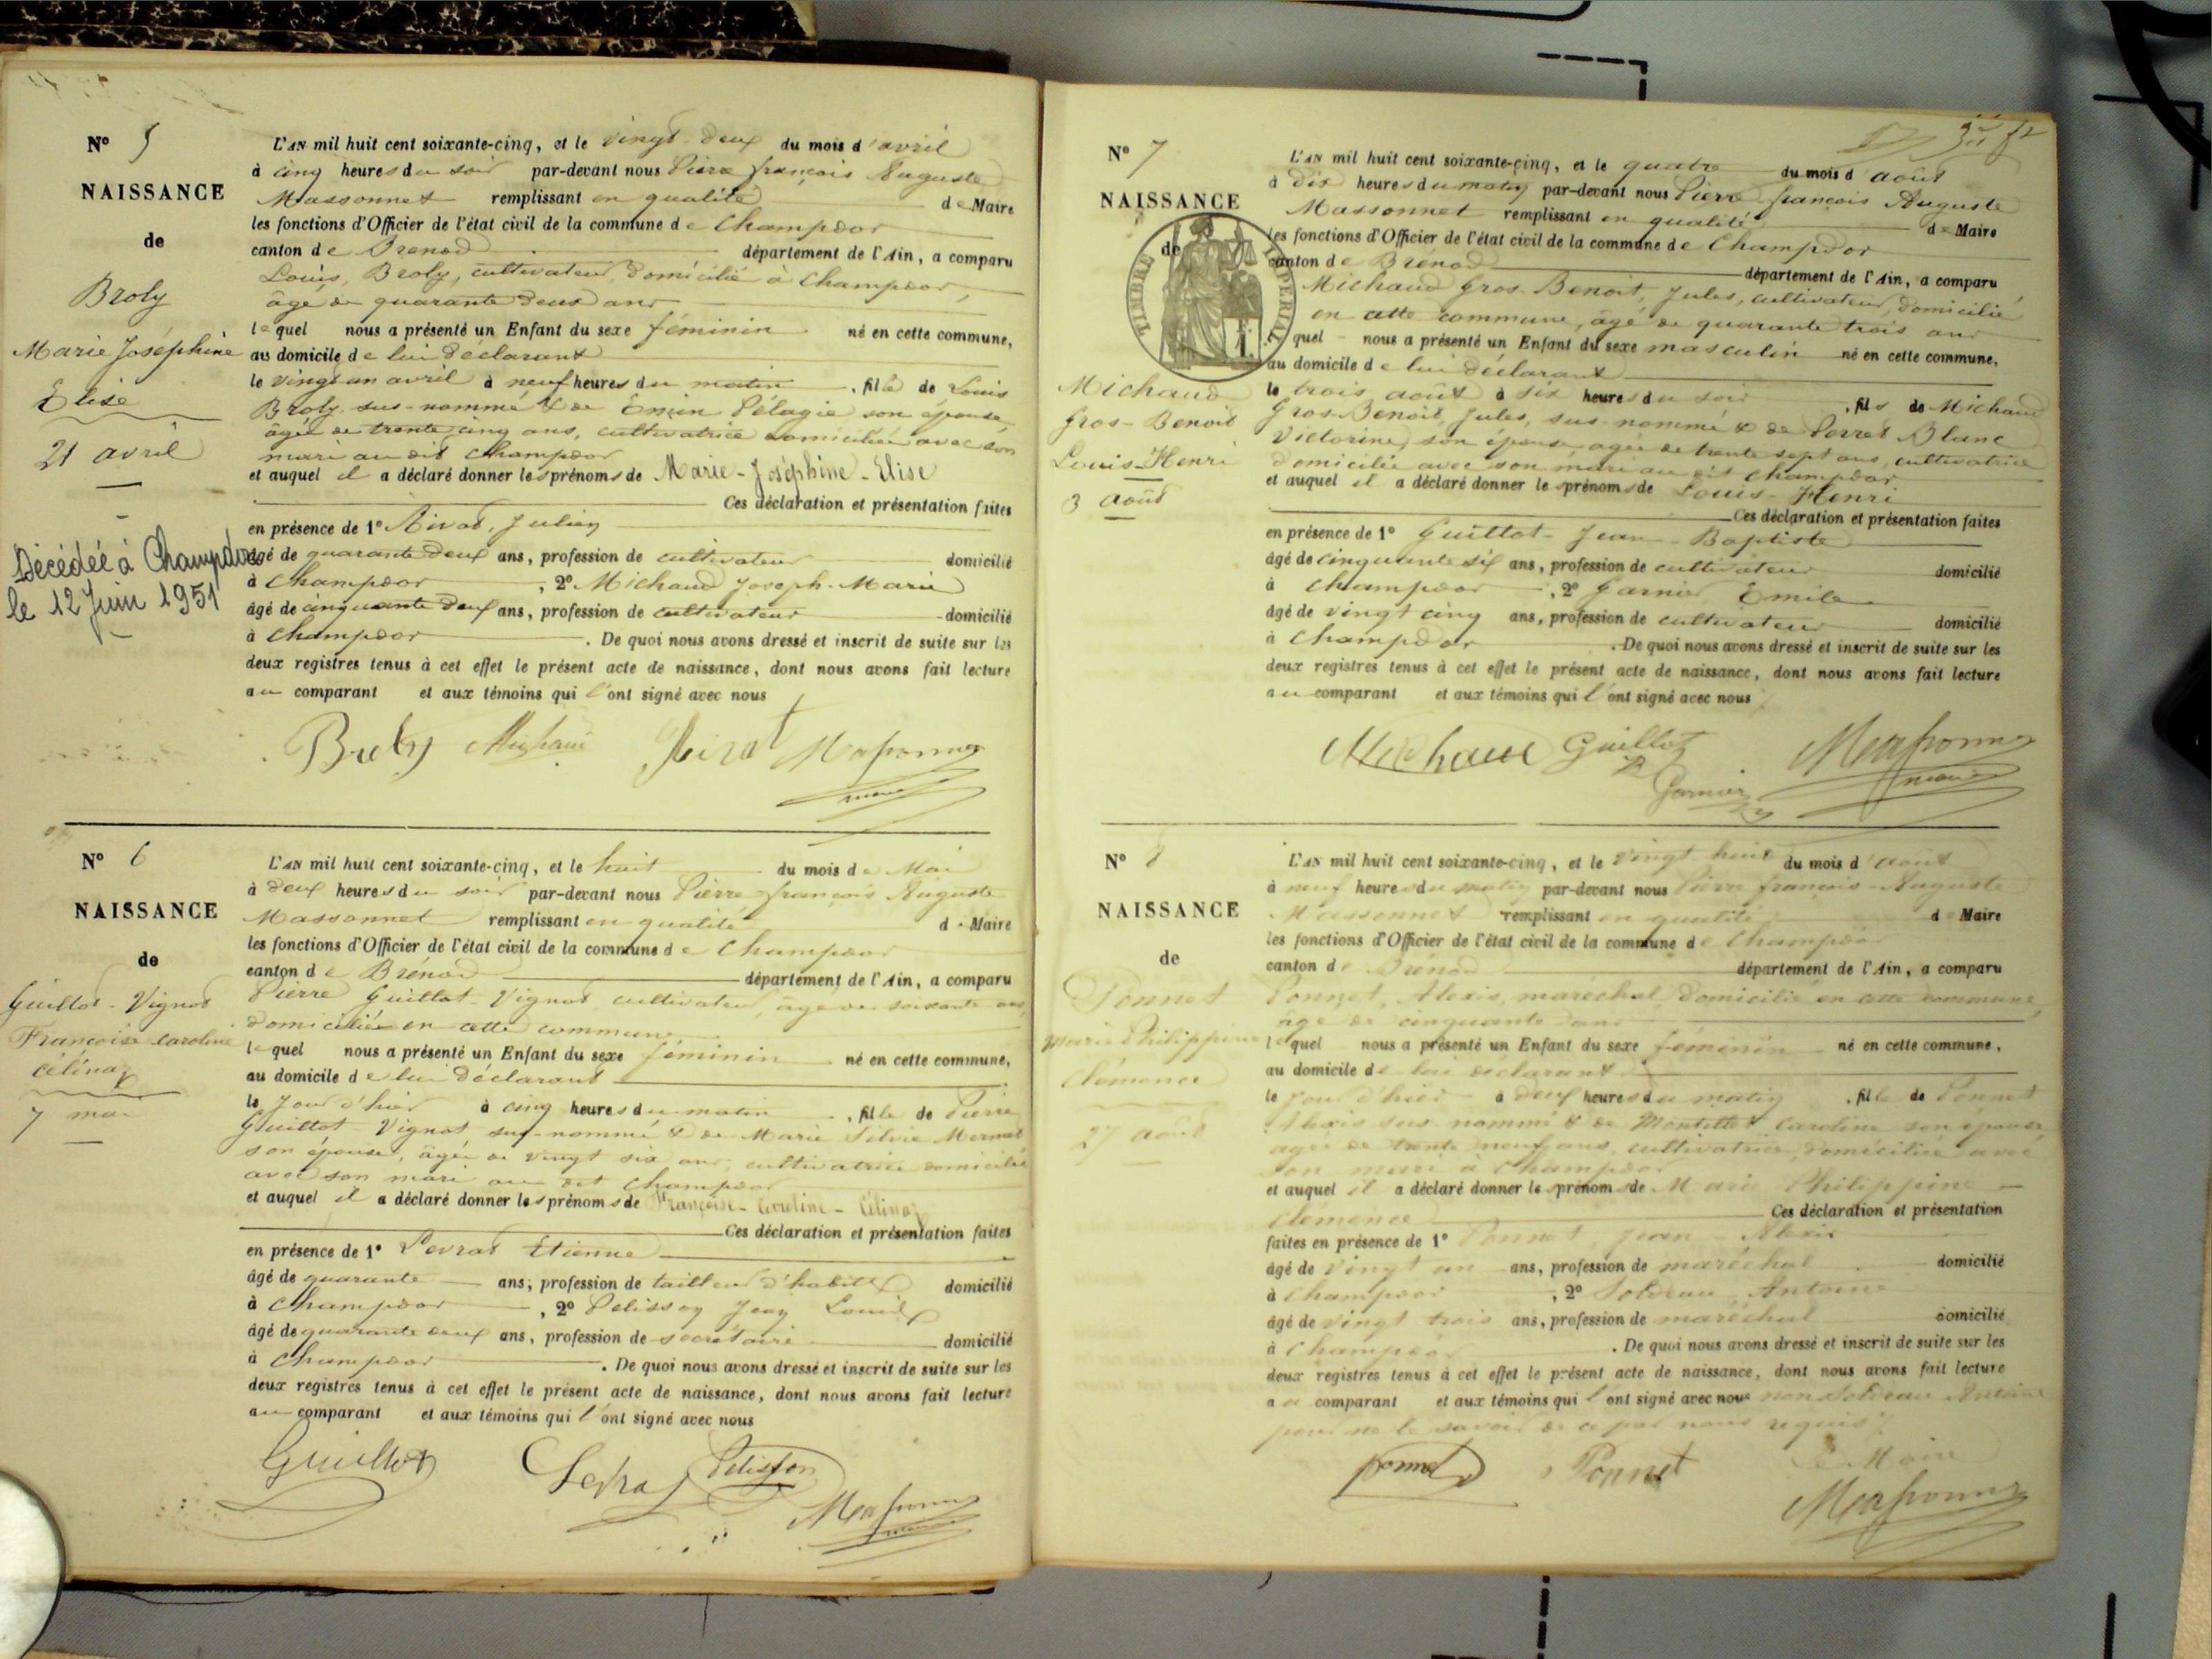 N° 5
NAISSANCE
de
Broly
Marie Joséphine
Elise
21 avril
Décédée à Champdor
le 12 Juin 1951
L'AN mil huit cent soixante-cinq, et le vingt-deux du mois d'avril
à cinq heures du soir par-devant nous Pierre françois Auguste
Massonnet remplissant en qualité de Maire
les fonctions d'Officier de l'état civil de la commune de Champdor
canton de Brenod département de l'Ain, a comparu
Louis, Broly, cultivateur domicilié à Champdor,
âgé de quarante deux ans
lequel nous a présenté un Enfant du sexe féminin né en cette commune,
au domicile de lui déclarant
le vingt un avril à neuf heures du matin, fille de Louis
Broly sus-nommé & de Pélagie son épouse
âgée de trente cinq ans, cultivatrice domiciliée avec son
mari au dit Champdor
et auquel il a déclaré donner les prénoms de Marie-Joséphine-Elise
Ces déclaration et présentation faites
en présence de 1° Rivat, Julien
âgé de quarante deux ans, profession de cultivateur domicilié
à Champdor, 2° Michaud Joseph-Marie
âgé de cinquante deux ans, profession de cultivateur domicilié
à Champdor. De quoi nous avons dressé et inscrit de suite sur les
deux registres tenus à cet effet le présent acte de naissance, dont nous avons fait lecture
au comparant et aux témoins qui l'ont signé avec nous
Broly Michaud Rivat Massonnet
maire
N° 6
NAISSANCE
de
Guillot-Vignot
Françoise Caroline
Célina
7 mai
L'AN mil huit cent soixante-cinq, et le huit du mois de Mai
à deux heures du soir par-devant nous Pierre françois Auguste
Massonnet remplissant en qualité de Maire
les fonctions d'Officier de l'état civil de la commune de Champdor
canton de Brénod département de l'Ain, a comparu
Pierre Guillot-Vignot cultivateur, âgé de soixante ans,
domicilié en cette commune
lequel nous a présenté un Enfant du sexe féminin né en cette commune,
au domicile de lui déclarant
le jour d'hier à cinq heures du matin, fille de Pierre
Guillot-Vignot sus-nommé & de Marie Silvie Mermet
son épouse, âgée de vingt six ans, cultivatrice domiciliée
avec son mari au dit Champdor
et auquel il a déclaré donner les prénoms de Françoise-Caroline-Célina
Ces déclaration et présentation faites
en présence de 1° Levrat Etienne
âgé de quarante ans, profession de tailleur d'habits domicilié
à Champdor, 2° Pelisson Jean Louis
âgé de quarante deux ans, profession de secrétaire domicilié
à Champdor. De quoi nous avons dressé et inscrit de suite sur les
deux registres tenus à cet effet le présent acte de naissance, dont nous avons fait lecture
au comparant et aux témoins qui l'ont signé avec nous
Guillot Levrat Pelisson
Massonnet
maire
N° 7
NAISSANCE
de
TIMBRE IMPERIAL
Michaud
Gros-Benoit
Louis-Henri
3 août
L'AN mil huit cent soixante-cinq, et le quatre du mois d'août
à dix heures du matin par-devant nous Pierre françois Auguste
Massonnet remplissant en qualité de Maire
les fonctions d'Officier de l'état civil de la commune de Champdor
canton de Brénod département de l'Ain, a comparu
Michaud Gros-Benoit, Jules, cultivateur, domicilié
en cette commune, âgé de quarante trois ans
quel nous a présenté un Enfant du sexe masculin né en cette commune,
au domicile de lui déclarant
le trois août à six heures du soir, fils de Michaud
Gros-Benoit, Jules, sus-nommé & de Perret Blanc
Victorine, son épouse, âgée de trente sept ans, cultivatrice
domiciliée avec son mari au dit Champdor
et auquel il a déclaré donner les prénoms de Louis-Henri
Ces déclaration et présentation faites
en présence de 1° Guillot-Jean-Baptiste
âgé de cinquante six ans, profession de cultivateur domicilié
à Champdor, 2° Garnier Emile
âgé de vingt cinq ans, profession de cultivateur domicilié
à Champdor. De quoi nous avons dressé et inscrit de suite sur les
deux registres tenus à cet effet le présent acte de naissance, dont nous avons fait lecture
au comparant et aux témoins qui l'ont signé avec nous
Michaud Guillot Massonnet
Garnier maire
N° 8
NAISSANCE
de
Ponnet
Marie Philippine
Clémence
27 août
L'AN mil huit cent soixante-cinq, et le vingt-huit du mois d'août
à neuf heures du matin par-devant nous Pierre françois-Auguste
Massonnet remplissant en qualité de Maire
les fonctions d'Officier de l'état civil de la commune de Champdor
canton de Brénod département de l'Ain, a comparu
Ponnet, Alexis, maréchal, domicilié en cette commune,
âgé de cinquante ans
lequel nous a présenté un Enfant du sexe féminin né en cette commune,
au domicile de lui déclarant
le jour d'hier à deux heures du matin, fille de Ponnet
Alexis sus-nommé & de Montillet Caroline son épouse
âgée de trente neuf ans, cultivatrice, domiciliée avec
son mari à Champdor
et auquel il a déclaré donner les prénoms de Marie Philippine
Clémence Ces déclaration et présentation
faites en présence de 1° Ponnet Jean Alexis
âgé de vingt un ans, profession de maréchal domicilié
à Champdor, 2° Antoine
âgé de vingt trois ans, profession de maréchal domicilié
à Champdor. De quoi nous avons dressé et inscrit de suite sur les
deux registres tenus à cet effet le présent acte de naissance, dont nous avons fait lecture
au comparant et aux témoins qui l'ont signé avec nous non Antoine
pour ne le savoir de ce par nous requis
Ponnet Ponnet Le Maire
Massonnet